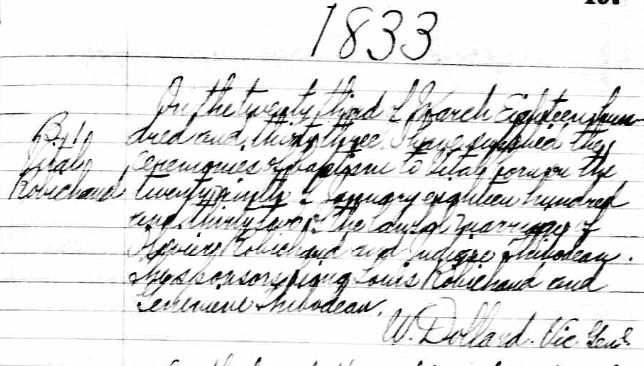 1833
On the twenty third of March Eighteen hun-
dred and thirty three I have supplied the
ceremonies of baptism to Vital born on the
twenty ninth January eighteen hundred
and thirty of the lawful marriage of
Robichaud and Thibodeau.
The sponsors being Louis Robichaud and
Genevieve Thibodeau.
W. Dollard. Vic. Genl.
Bpt
Vital
Robichaud